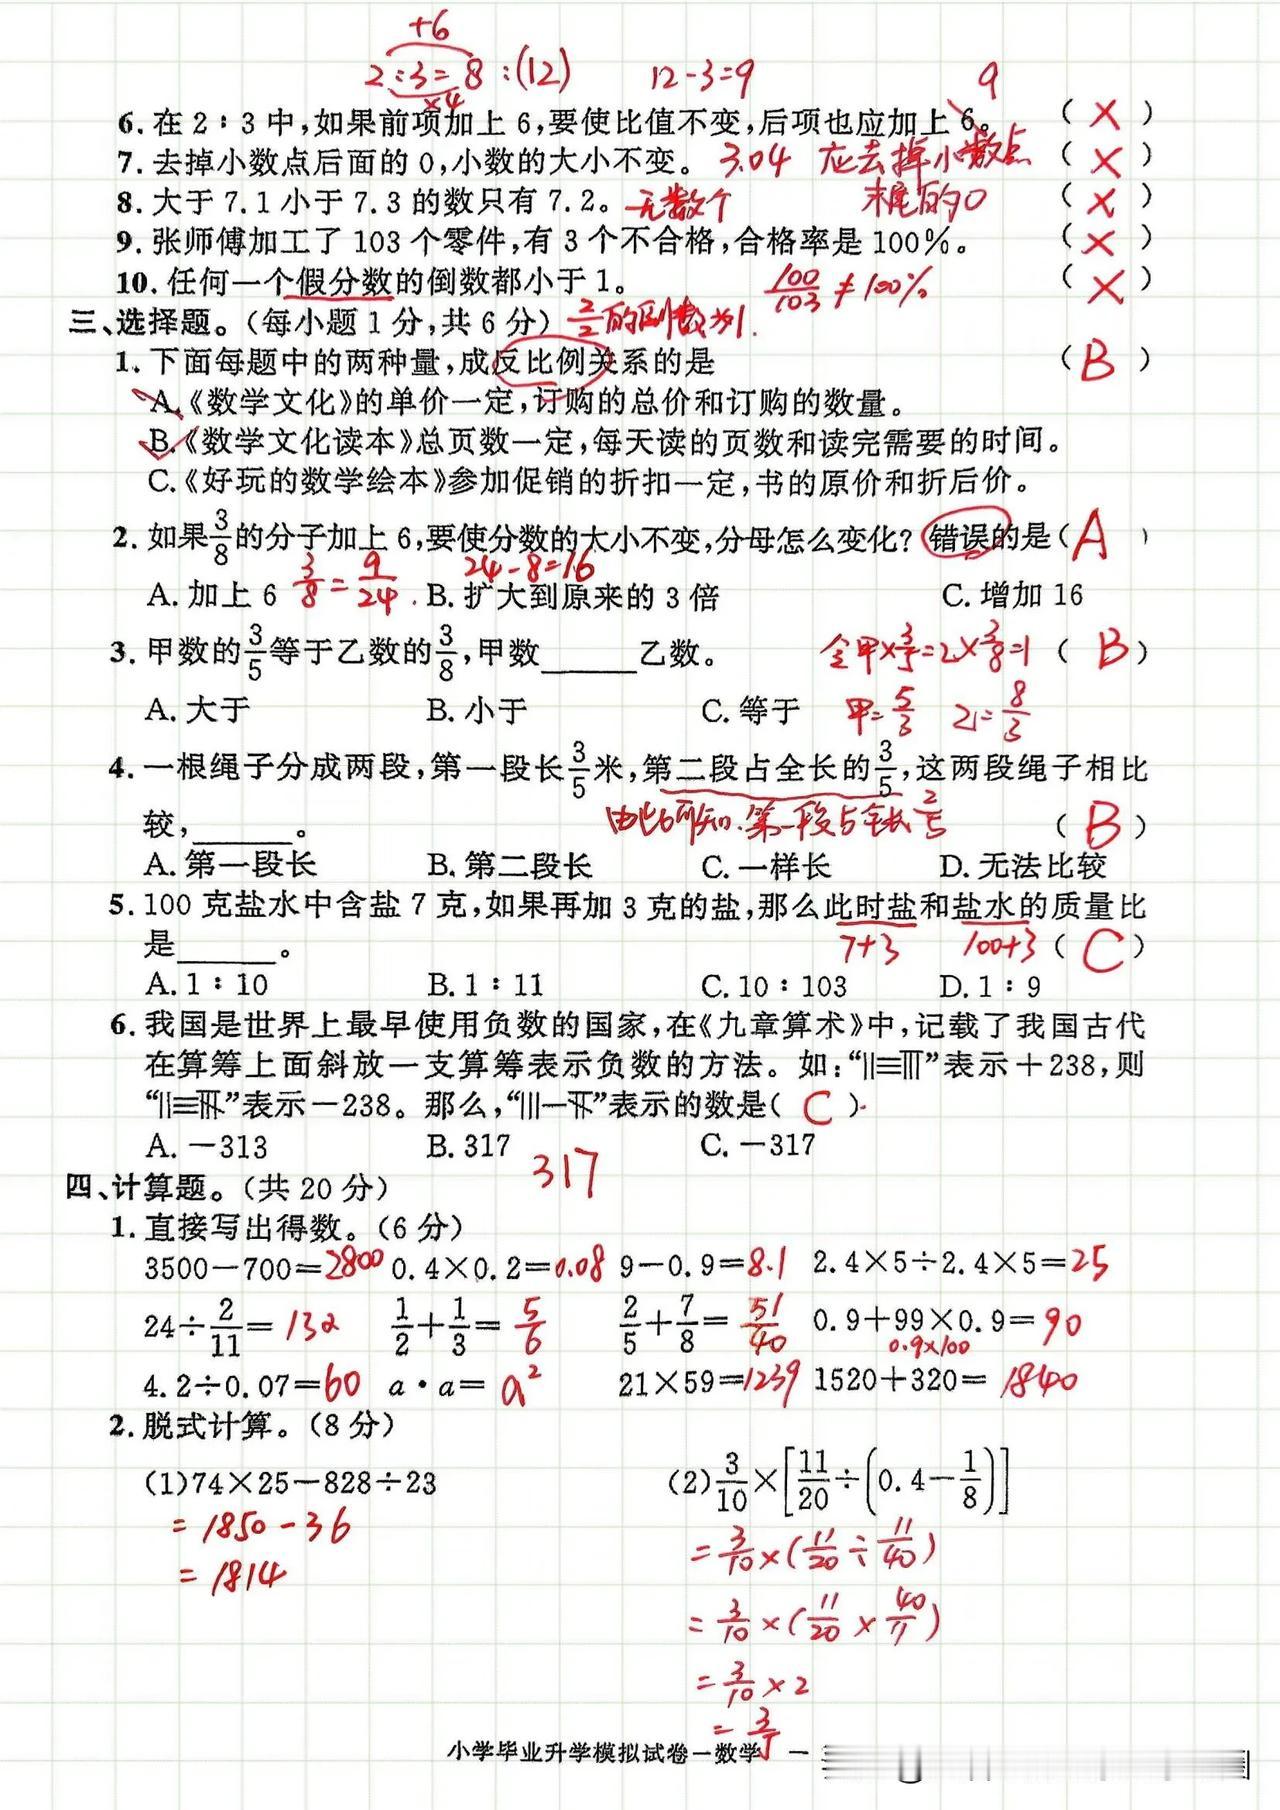 +6
2:3=8:(12) 12-3=9 9
×4
6.在2:3中,如果前项加上6,要使比值不变,后项也应加上6。 (×)
7.去掉小数点后面的0,小数的大小不变。 3.04 应去掉小数点 (×)
8.大于7.1小于7.3的数只有7.2。 无数个 末尾的0 (×)
9.张师傅加工了103个零件,有3个不合格,合格率是100%。 (×)
10.任何一个假分数的倒数都小于1。 100/103≠100% (×)
三、选择题。(每小题1分,共6分) 2/2的倒数为1.
1.下面每题中的两种量,成反比例关系的是 (B)
A.《数学文化》的单价一定,订购的总价和订购的数量。
B.《数学文化读本》总页数一定,每天读的页数和读完需要的时间。
C.《好玩的数学绘本》参加促销的折扣一定,书的原价和折后价。
2.如果3/8的分子加上6,要使分数的大小不变,分母怎么变化?错误的是(A)
24-8=16
A.加上6 3/8=9/24. B.扩大到原来的3倍 C.增加16
3.甲数的3/5等于乙数的3/8,甲数______乙数。 令甲×3/5=乙×3/8=1 (B)
A.大于 B.小于 C.等于 甲=5/3 乙=8/3
4.一根绳子分成两段,第一段长3/5米,第二段占全长的3/5,这两段绳子相比
较,______。 由此可知.第一段占全长2/5 (B)
A.第一段长 B.第二段长 C.一样长 D.无法比较
5.100克盐水中含盐7克,如果再加3克的盐,那么此时盐和盐水的质量比
是______。 7+3 100+3 (C)
A.1:10 B.1:11 C.10:103 D.1:9
6.我国是世界上最早使用负数的国家,在《九章算术》中,记载了我国古代
在算筹上面斜放一支算筹表示负数的方法。如:“”表示+238,则
“”表示-238。那么,“”表示的数是(C).
A.-313 B.317 C.-317
317
四、计算题。(共20分)
1.直接写出得数。(6分)
3500-700=2800 0.4×0.2=0.08 9-0.9=8.1 2.4×5÷2.4×5=25
24÷2/11=132 1/2+1/3=5/6 2/5+7/8=51/40 0.9+99×0.9=90
0.9×100
4.2÷0.07=60 a·a=a² 21×59=1239 1520+320=1840
2.脱式计算。(8分)
(1)74×25-828÷23 (2)3/10×[11/20÷(0.4-1/8)]
=1850-36 =3/10×(11/20÷11/40)
=1814 =3/10×(11/20×40/11)
=3/10×2
=3/5
小学毕业升学模拟试卷一数学 —